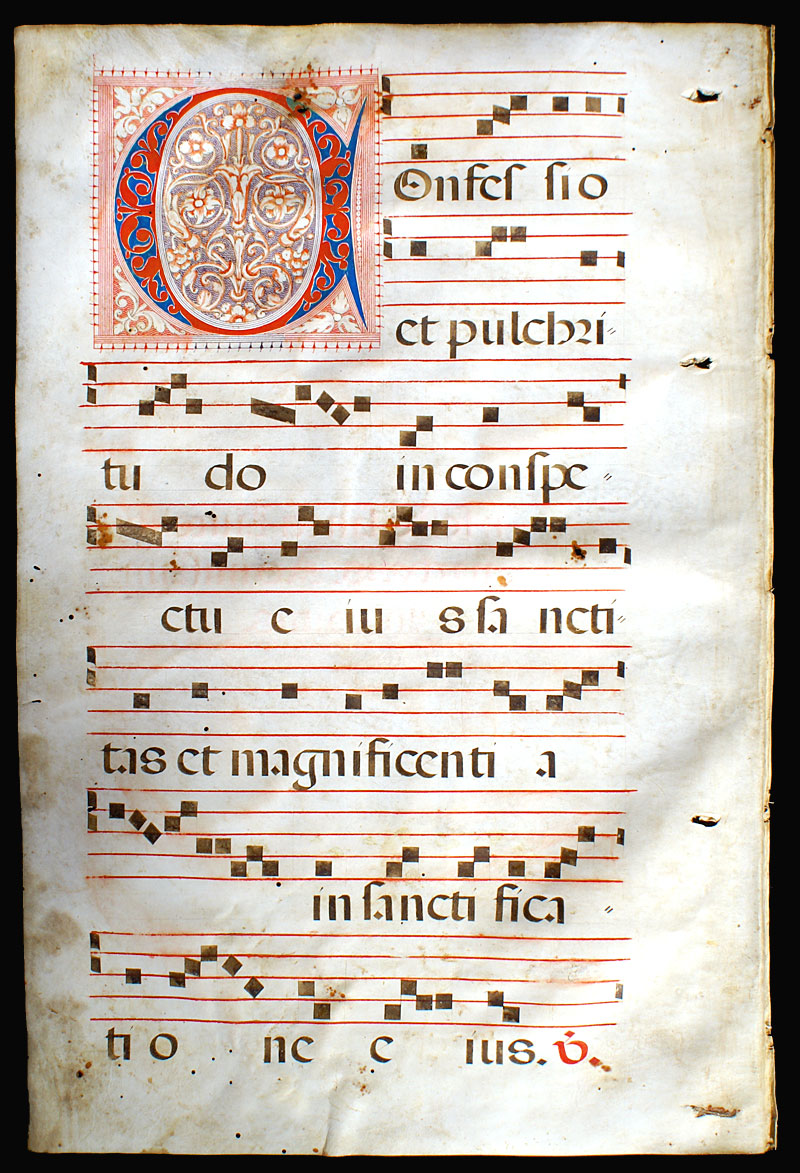 COnfes sio
et pulchri-
tu do in conspe-
ctu e iu s sa ncti-
tas et magnificenti a
in sancti fica-
ti o ne e ius. V.